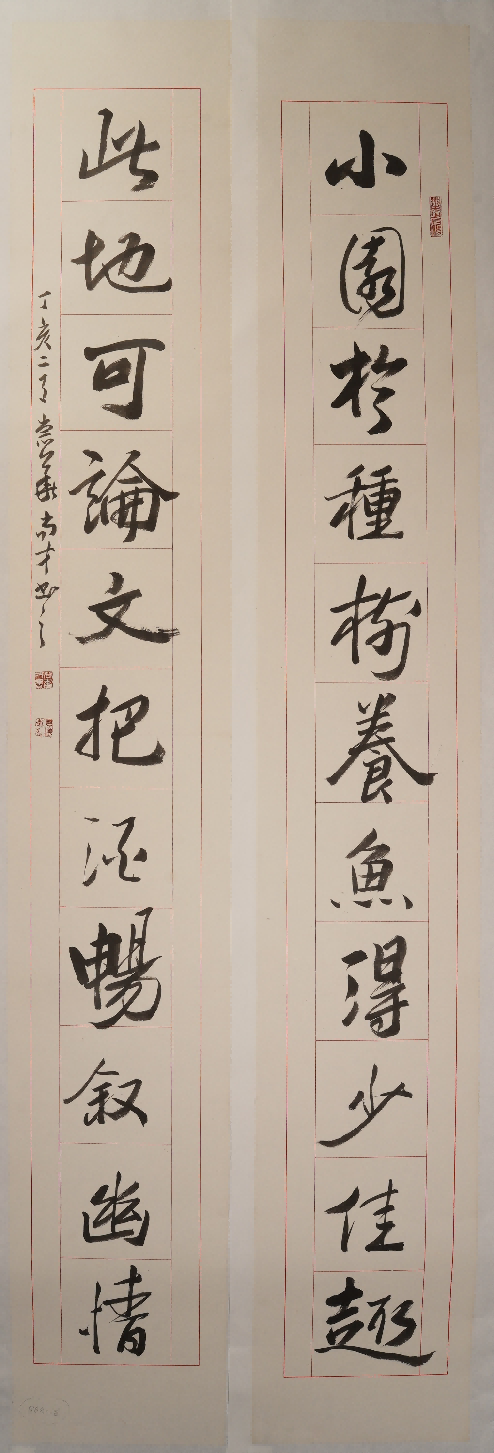 小園於種樹養魚得少佳趣
此地可論文把酒暢叙幽情
丁亥二月 尚才書之